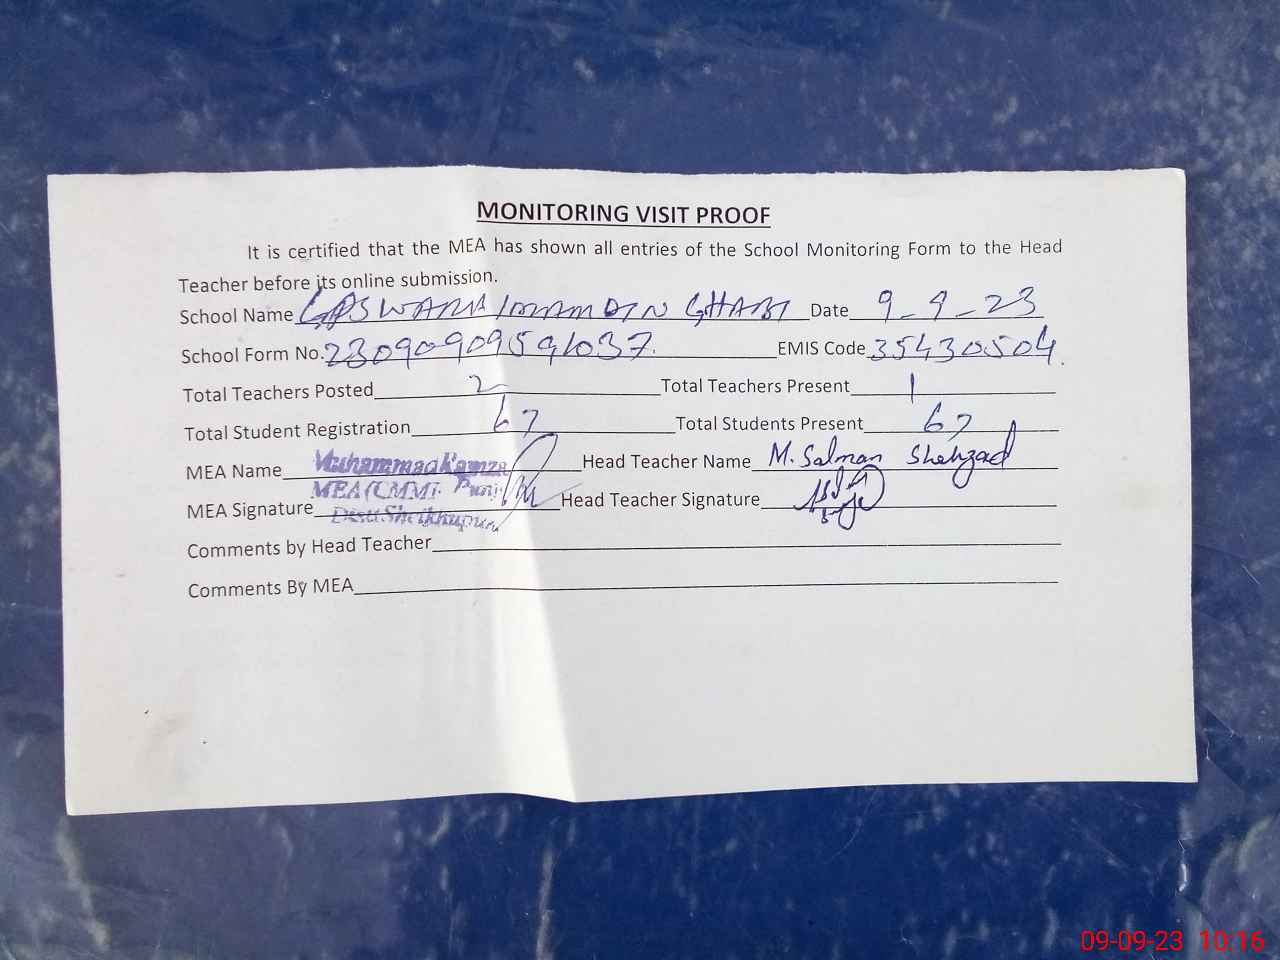 MONITORING VISIT PROOF
It is certified that the MEA has shown all entries of the School Monitoring Form to the Head
Teacher before its online submission.
School Name GPS WARA IMAM DIN GHABI Date 9-9-23
School Form No. 23090909591037. EMIS Code 35430504
Total Teachers Posted 2 Total Teachers Present 1
Total Student Registration 67 Total Students Present 67
MEA Name Muhammad Hamza Head Teacher Name M. Salman Shehzad
MEA (CMMI. Punj
MEA Signature Head Teacher Signature
Distt. Sheikhupura
Comments by Head Teacher
Comments By MEA
09-09-23 10:16